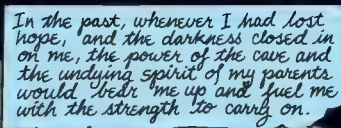 In the past, whenever I had lost
hope, and the darkness closed in
on me, the power of the cave and
the undying spirit of my parents
would bear me up and fuel me
with the strength to carry on.